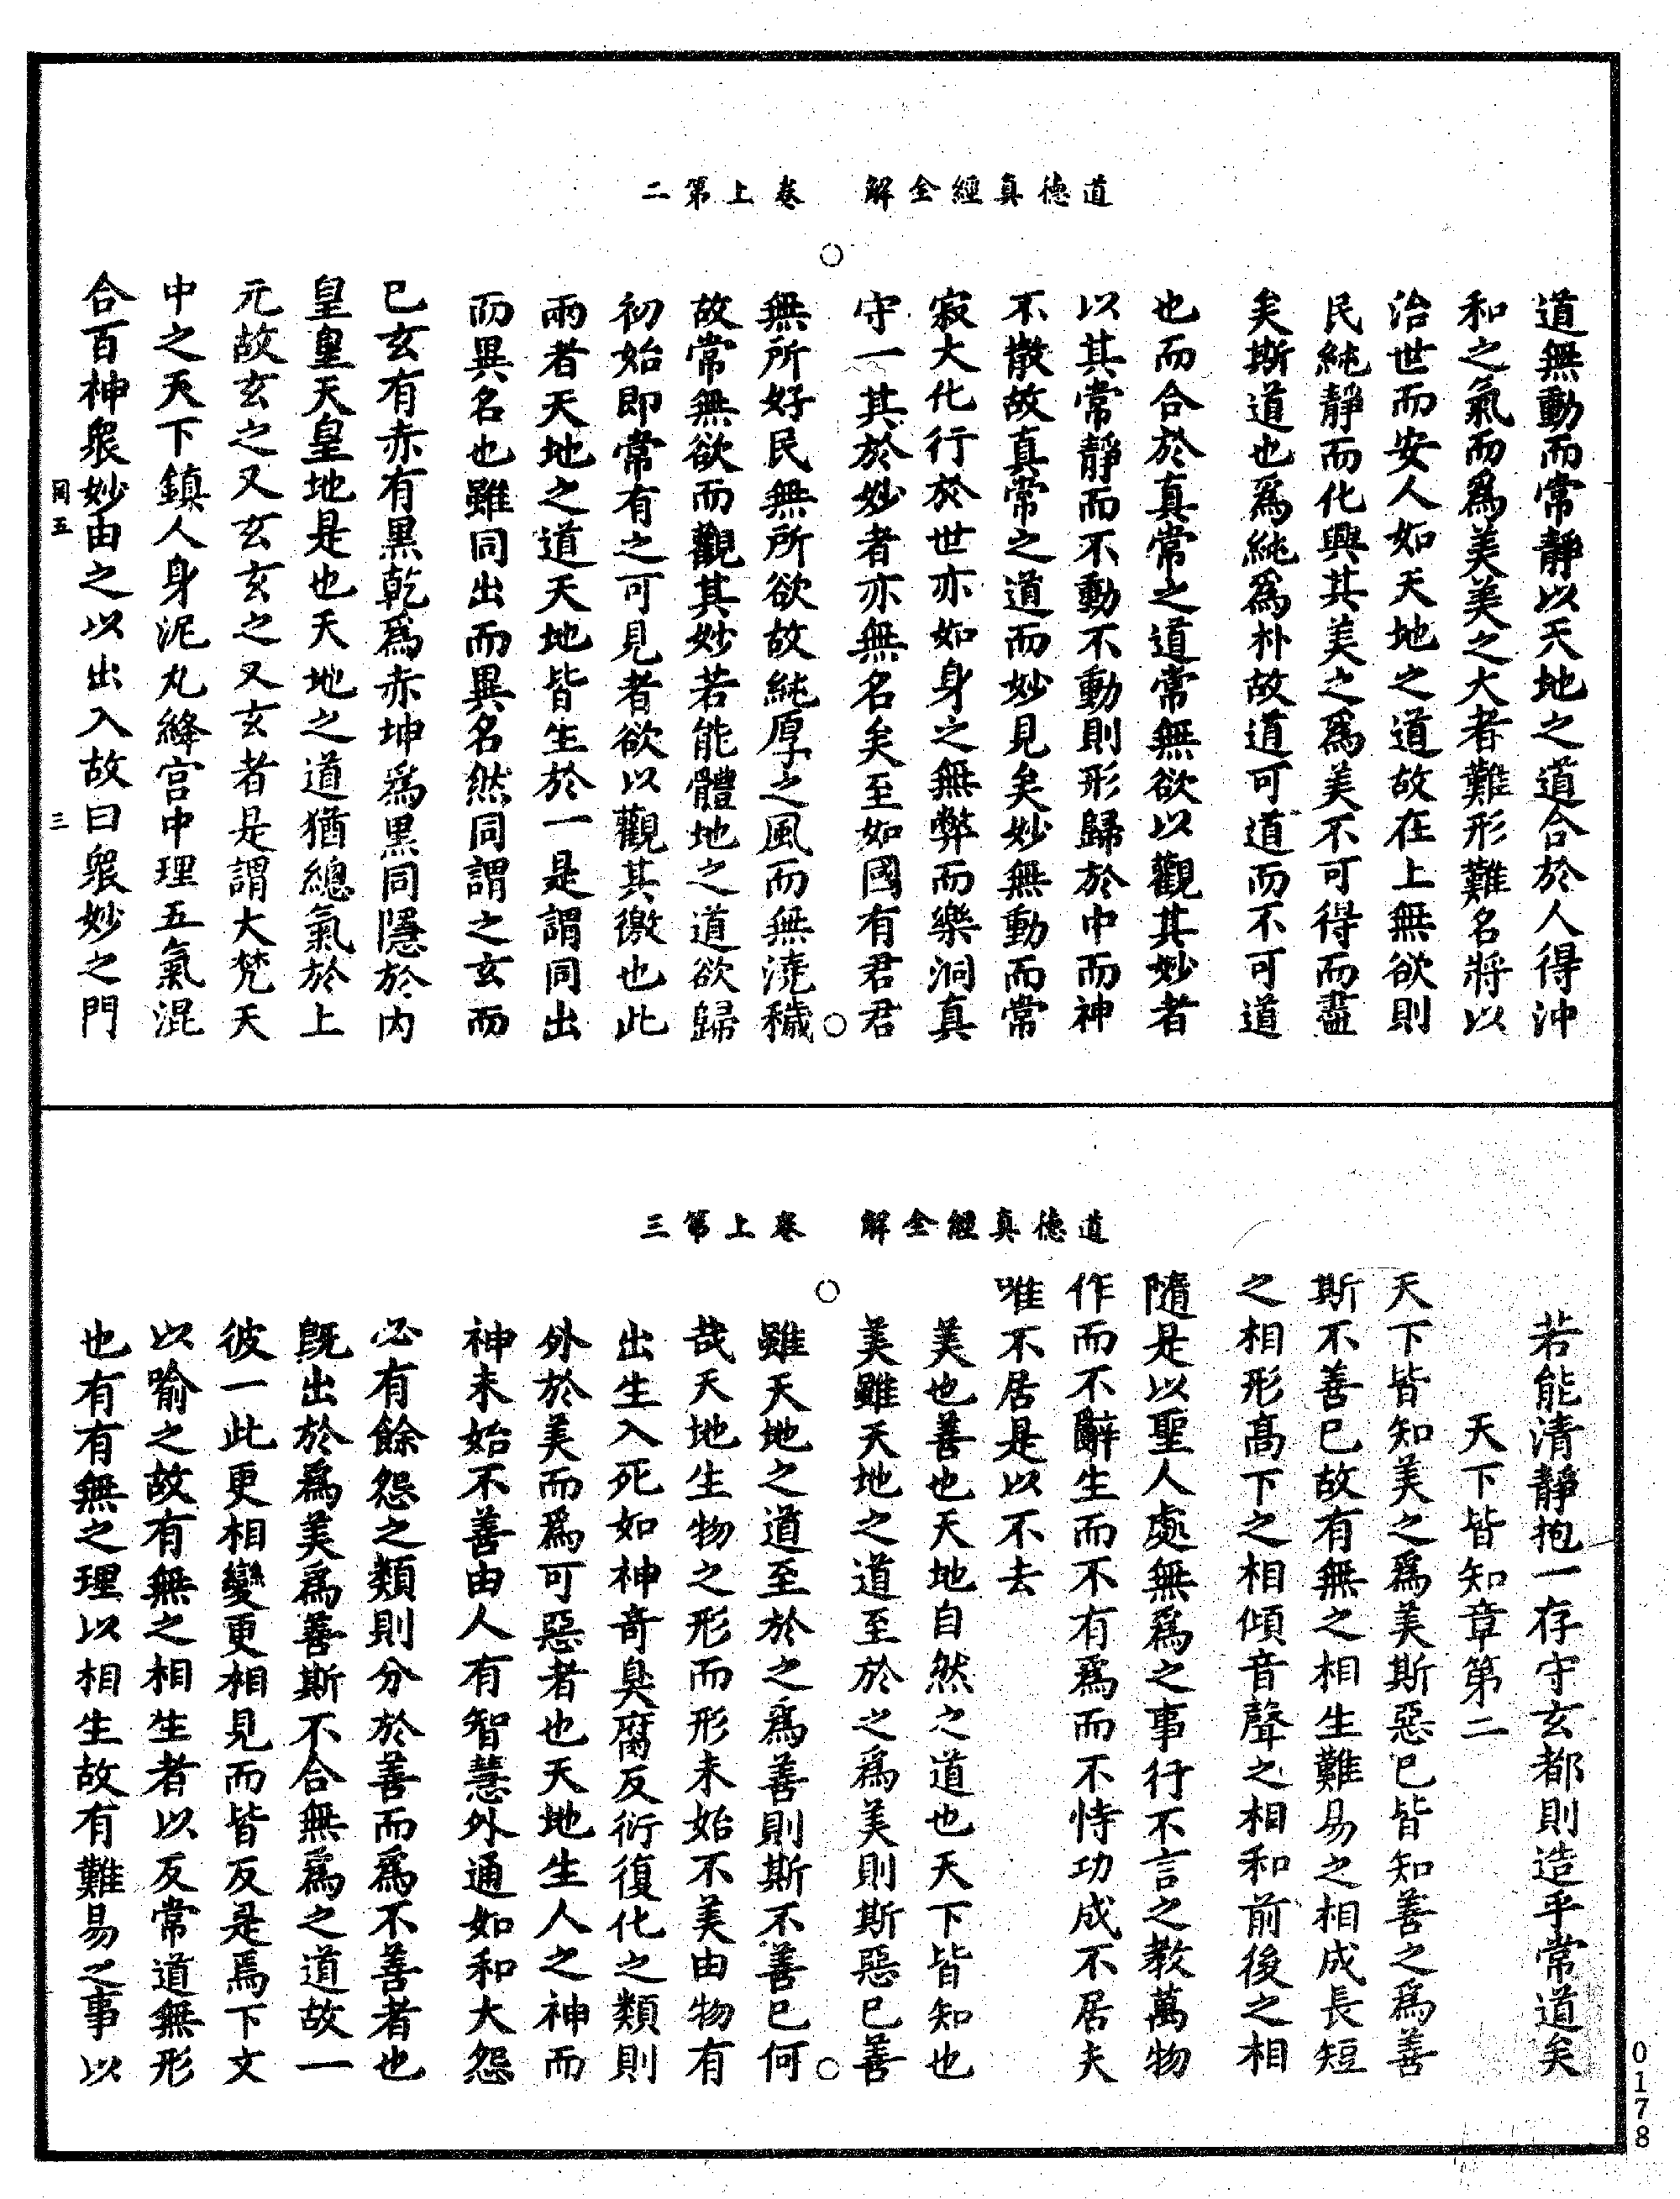 道德真經全解　卷上第二
道無動而常靜以天地之道合於人得沖
和之氣而爲美美之大者難形難名將以
治世而安人如天地之道故在上無欲則
民純靜而化興其美之爲美不可得而盡
矣斯道也爲純爲朴故道可道而不可道
也而合於真常之道常無欲以觀其妙者
以其常靜而不動不動則形歸於中而神
不散故真常之道而妙見矣妙無動而常
寂大化行於世亦如身之無弊而樂洞真
守一其於妙者亦無名矣至如國有君君
無所好民無所欲故純厚之風而無澆穢
故常無欲而觀其妙若能體地之道欲歸
初始即常有之可見者欲以觀其徼也此
兩者天地之道天地皆生於一是謂同出
而異名也雖同出而異名然同謂之玄而
已玄有赤有黑乾爲赤坤爲黑同隱於內
皇皇天皇地是也天地之道猶總氣於上
元故玄之又玄玄之又玄者是謂大梵天
中之天下鎮人身泥丸絳宫中理五氣混
合百神衆妙由之以出入故曰衆妙之門
罔五　三
道德真經全解　卷上第三
若能清靜抱一存守玄都則造乎常道矣
天下皆知章第二
天下皆知美之爲美斯惡已皆知善之爲善
斯不善已故有無之相生難易之相成長短
之相形高下之相傾音聲之相和前後之相
隨是以聖人處無爲之事行不言之教萬物
作而不辭生而不有爲而不恃功成不居夫
唯不居是以不去
美也善也天地自然之道也天下皆知也
美雖天地之道至於之爲美則斯惡已善
雖天地之道至於之爲善則斯不善已何
哉天地生物之形而形未始不美由物有
出生入死如神奇臭腐反衍復化之類則
外於美而爲可惡者也天地生人之神而
神未始不善由人有智慧外通如和大怨
必有餘怨之類則分於善而爲不善者也
既出於爲美爲善斯不合無爲之道故一
彼一此更相變更相見而皆反是焉下文
以喻之故有無之相生者以反常道無形
也有有無之理以相生故有難易之事以
0178